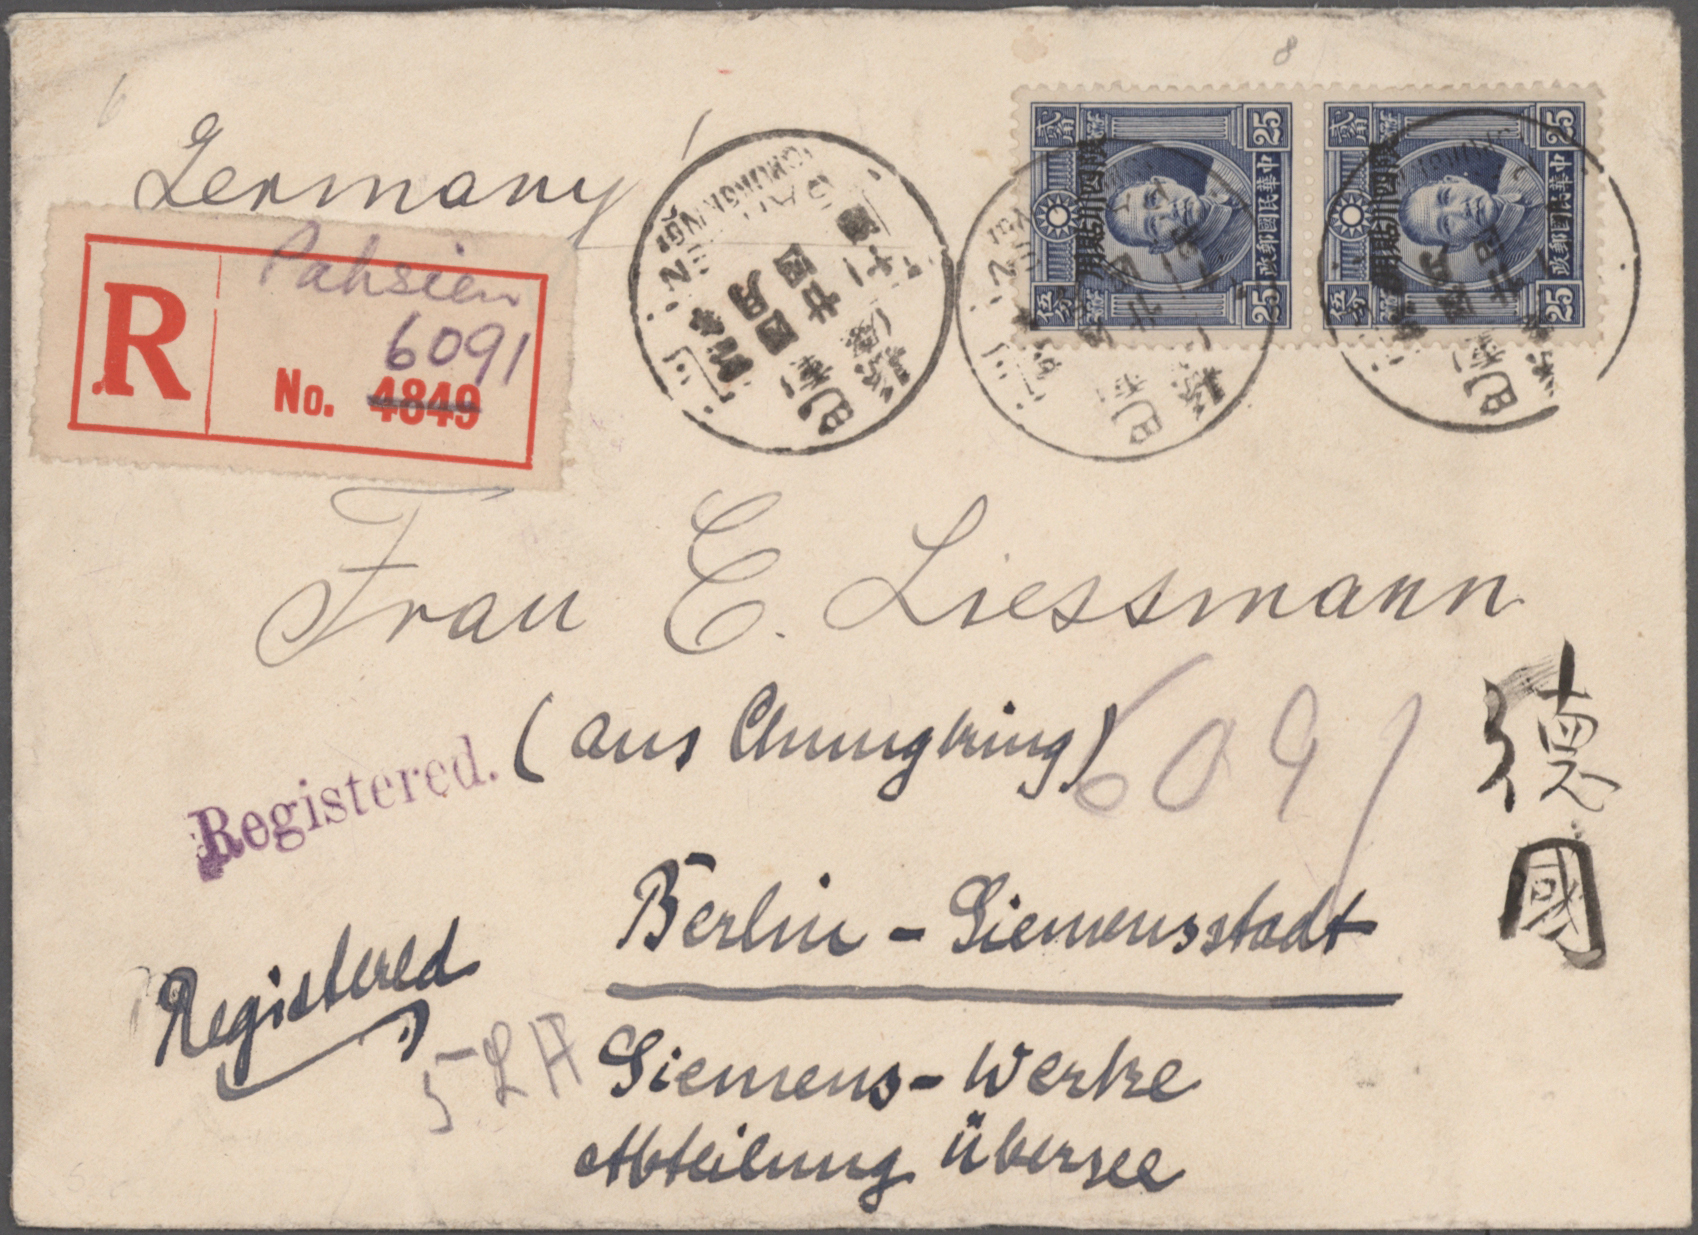 Germany
Pahsien
6091
R
No. 4849
25
25
中華民國郵政
限四川貼用
貳
伍
25
25
中華民國郵政
限四川貼用
貳
伍
四月
廿四
巴
Frau E. Liessmann
(aus Chungking)
6091
德國
Registered.
Berlin-Siemensstadt
Registered
5 L H
Siemens-Werke
Abteilung Übersee